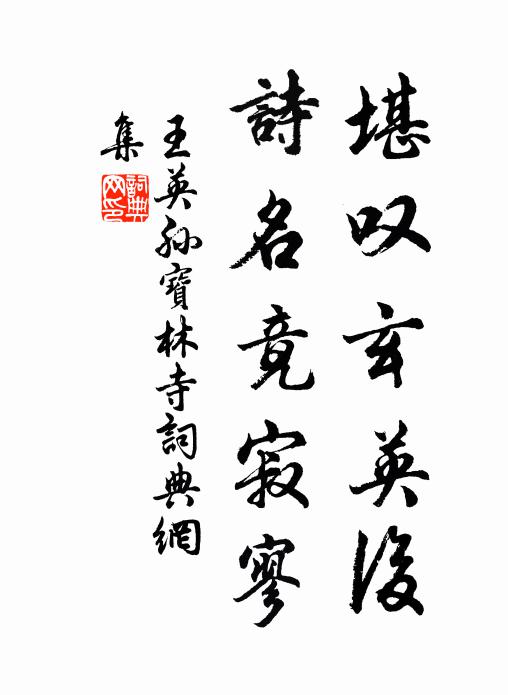 堪叹玄英後
詩名竟寂寥
王英孙寶林寺詞典網
集
詞典
网印